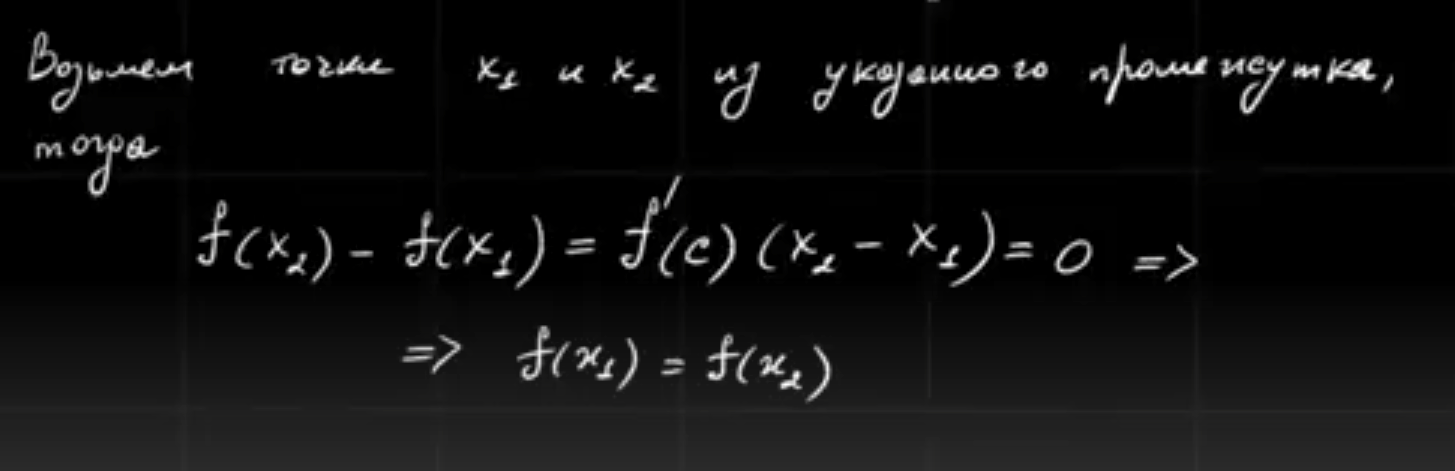 Возьмем точки x₁ и x₂ из указанного промежутка,
тогда
f(x₂) - f(x₁) = f'(c) (x₂ - x₁) = 0 =>
=> f(x₁) = f(x₂)